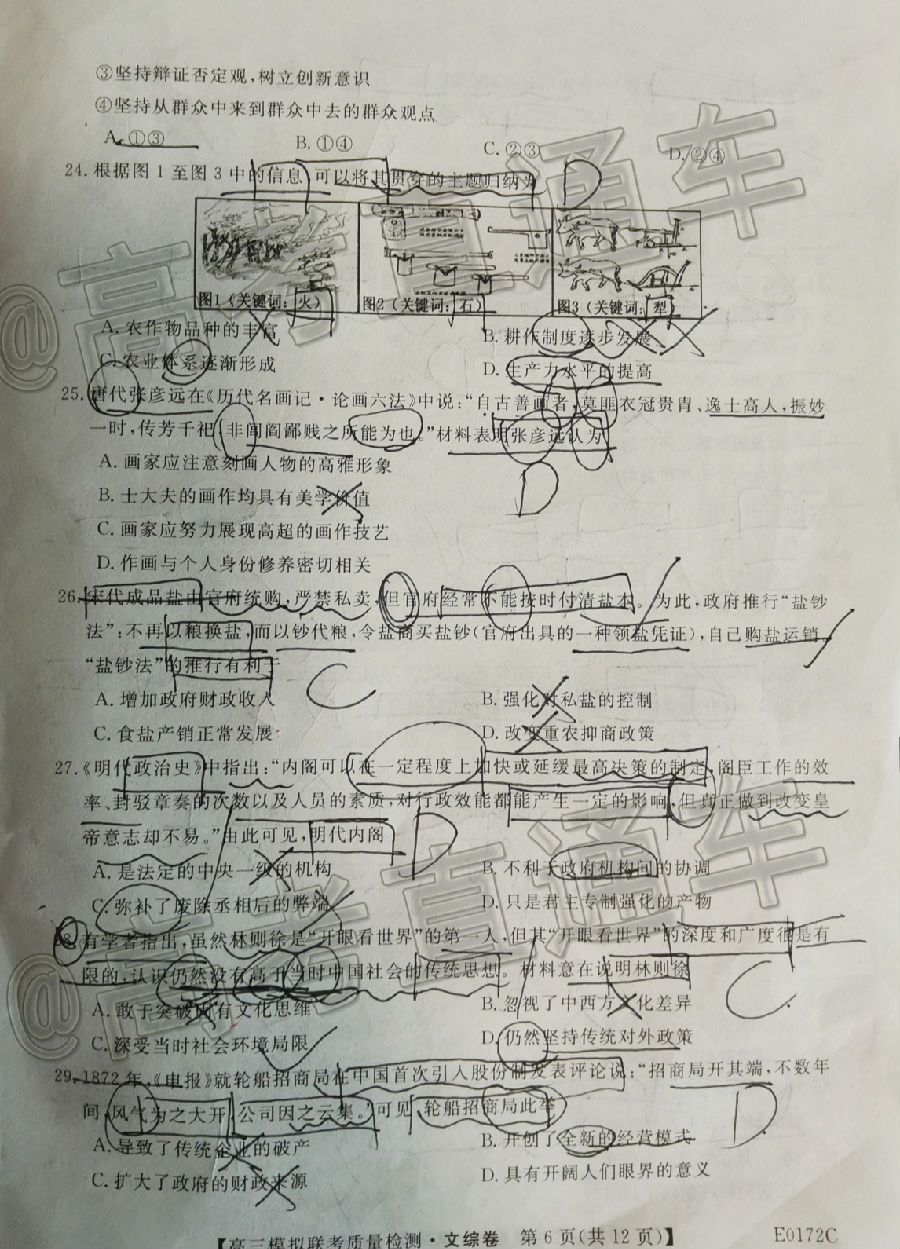 ③坚持辩证否定观,树立创新意识
④坚持从群众中来到群众中去的群众观点
A.①③ B.①④ C.②③ D.②④
24.根据图1至图3中的信息,可以将其贯穿的主题归纳为 D
图1(关键词:火) 图2(关键词:石) 图3(关键词:犁)
A.农作物品种的丰富 B.耕作制度逐步发展
C.农业体系逐渐形成 D.生产力水平的提高
25.唐代张彦远在《历代名画记·论画六法》中说:“自古善画者,莫匪衣冠贵胄、逸士高人,振妙
一时,传芳千祀,非闾阎鄙贱之所能为也。”材料表明张彦远认为
A.画家应注意刻画人物的高雅形象 D
B.士大夫的画作均具有美学价值
C.画家应努力展现高超的画作技艺
D.作画与个人身份修养密切相关
26.宋代成品盐由官府统购,严禁私卖,但官府经常不能按时付清盐本。为此,政府推行“盐钞
法”:不再以粮换盐,而以钞代粮,令盐商买盐钞(官府出具的一种领盐凭证),自己购盐运销。
“盐钞法”的推行有利于 C
A.增加政府财政收入 B.强化对私盐的控制
C.食盐产销正常发展 D.改变重农抑商政策
27.《明代政治史》中指出:“内阁可以在一定程度上加快或延缓最高决策的制定,阁臣工作的效
率、封驳章奏的次数以及人员的素质,对行政效能都能产生一定的影响,但真正做到改变皇
帝意志却不易。”由此可见,明代内阁 D
A.是法定的中央一级的机构 B.不利于政府机构间的协调
C.弥补了废除丞相后的弊端 D.只是君主专制强化的产物
28.有学者指出,虽然林则徐是“开眼看世界”的第一人,但其“开眼看世界”的深度和广度很是有
限的,认识仍然没有高于当时中国社会的传统思想。材料意在说明林则徐 C
A.敢于突破固有文化思维 B.忽视了中西方文化差异
C.深受当时社会环境局限 D.仍然坚持传统对外政策
29.1872年,《申报》就轮船招商局在中国首次引入股份制发表评论说:“招商局开其端,不数年
间,风气为之大开,公司因之云集。”可见,轮船招商局此举 D
A.导致了传统企业的破产 B.开创了全新的经营模式
C.扩大了政府的财政来源 D.具有开阔人们眼界的意义
【高三模拟联考质量检测·文综卷 第6页(共12页)】 E0172C
@高考直通车
@高考直通车